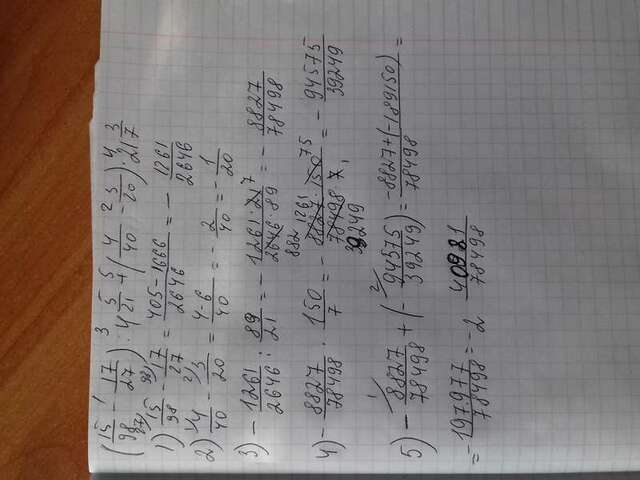 (15/98 - 17/27) : 4 5/21 + (4/40 - 3/20) · 21 3/7
1) 15/98 - 17/27 = 405-1666/2646 = - 1261/2646
2) 4/40 - 3/20 = 4-6/40 = - 2/40 = - 1/20
3) - 1261/2646 : 89/21 = - 1261·21/2646·89 = - 8827/78498
4) - 8827/78498 · 150/7 = - 8827·150/78498·7 = - 94575/39249
5) - 8827/78498 + (- 94575/39249) = -8827+(-189150)/78498 =
= - 197.977/78498 = -2 40981/78498